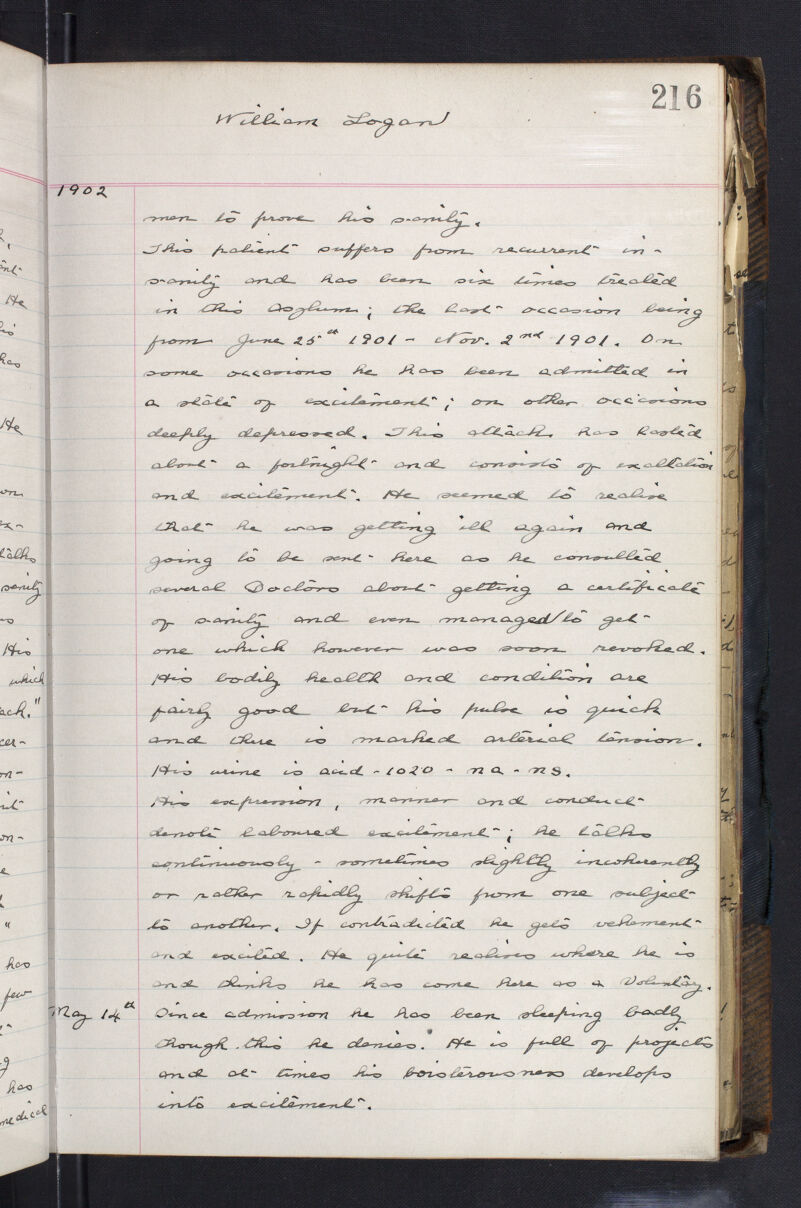 216
William Logan
1902
men to prove his sanity.
This patient suffers from recurrent in-
sanity and has been six times treated
in this Asylum; the last occasion being
from June 25th 1901 - Nov. 2nd 1901. On
some occasions he has been admitted in
a state of excitement; on other occasions
deeply depressed. This attack has lasted
about a fortnight and consists of exaltation
and excitement. He seemed to realise
that he was getting ill again and
going to be sent here as he consulted
several Doctors about getting a certificate
of sanity and even managed to get
one which however was soon revoked.
His bodily health and condition are
fairly good but his pulse is quick
and there is marked arterial tension.
His urine is acid - 1020 - na - ns.
His expression, manner and conduct
denote laboured excitement; he talks
continuously - sometimes slightly incoherently
or rather rapidly shifts from one subject
to another. If contradicted he gets vehement
and excited. He quite realises where he is
and thinks he has come here as a Voluntary.
May 14th Since admission he has been sleeping badly
though this he denies. He is full of projects
and at times his boisterousness develops
into excitement.
He
his
has
He
on
ex-
talks
sanity
His
which
ach."
cer-
on-
on-
"
has
few
has
medical